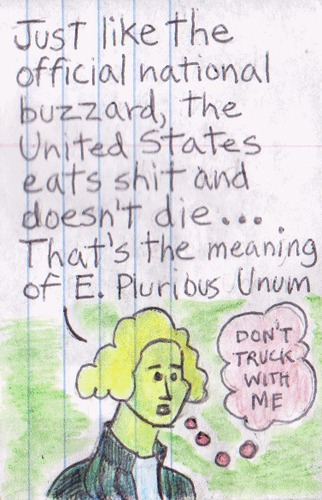 Just like the
official national
buzzard, the
United States
eats shit and
doesn't die...
That's the meaning
of E. Pluribus Unum
DON'T
TRUCK
WITH
ME